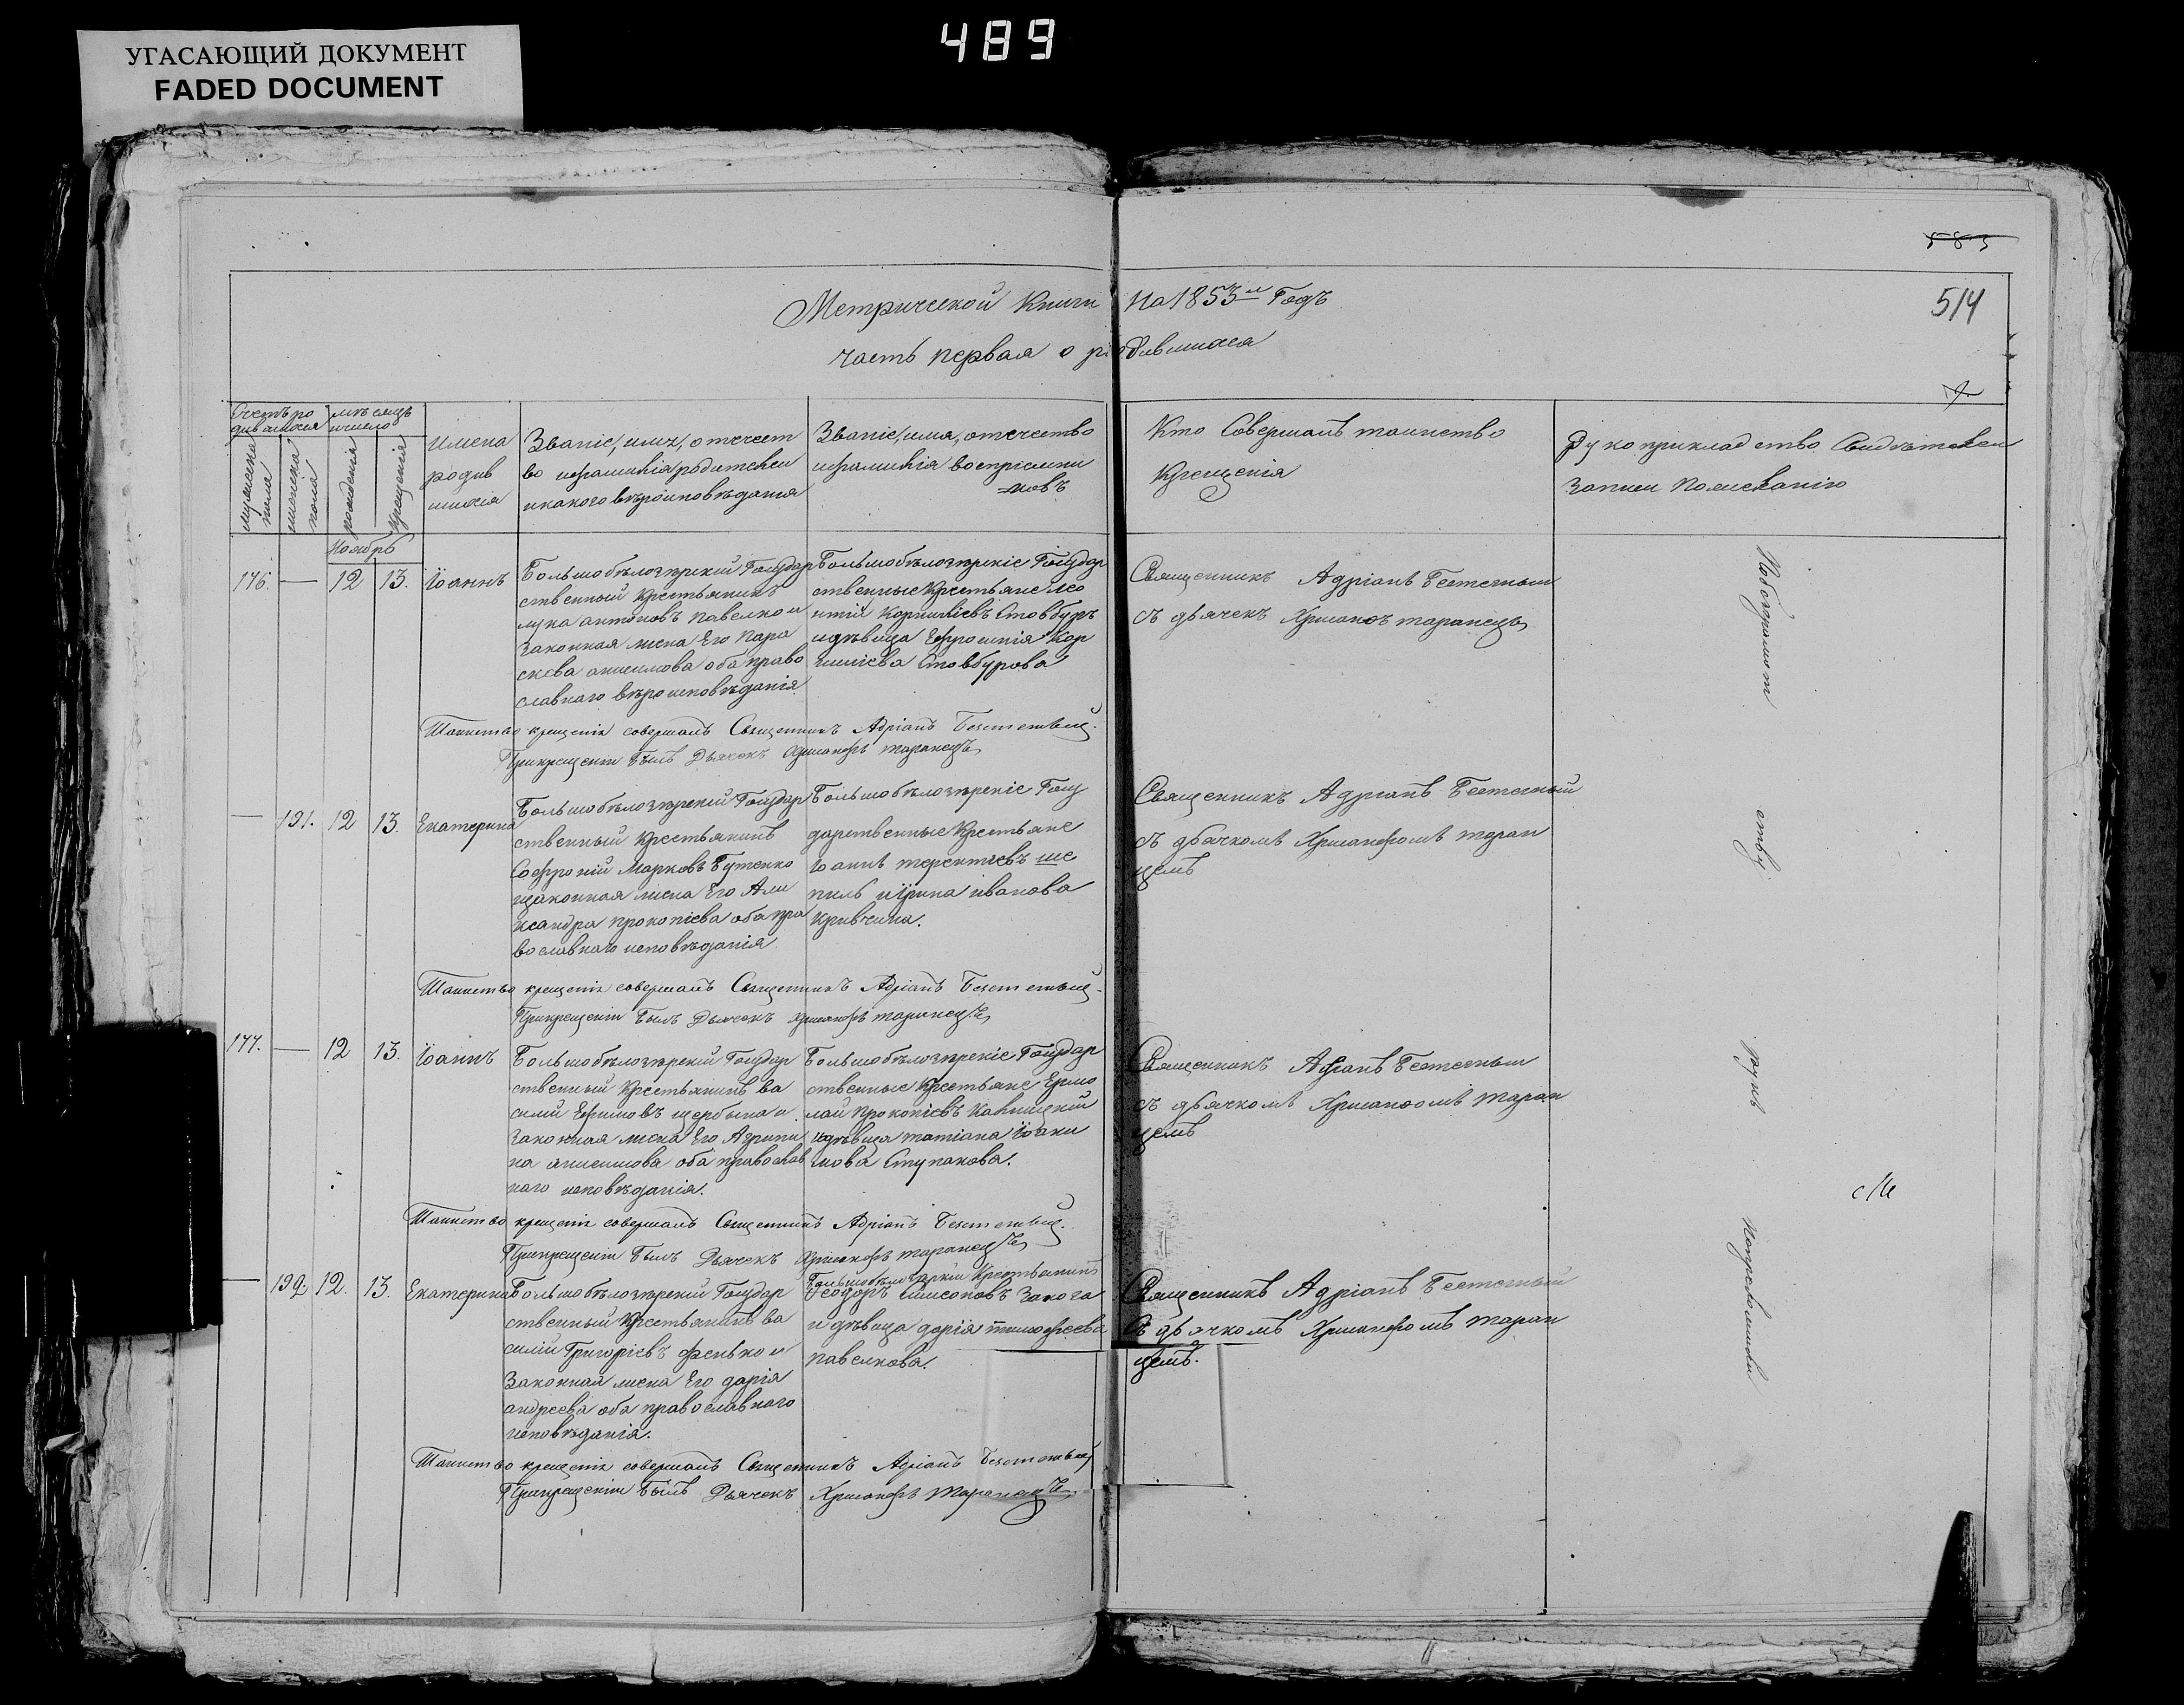 489
УГАСАЮЩИЙ ДОКУМЕНТ
FADED DOCUMENT
583
514
Метрической Книги на 1853й Годъ
часть первая о родившихся
Счетъ ро
дившихся
мѣсяцъ
и число
мужеска
пола
женска
пола
рожденія
крещенія
имена
родив
шихся
Званіе, имя, отечест
во и фамилія родителей
и какого вѣроисповѣданія
Званіе, имя, отечество
и фамилія воспріемни
ковъ
Кто Совершалъ таинство
Крещенія
Рукоприкладство Свидѣтелей
записи по желанію
Ноябрь
176. — 12 13. Іоаннъ
Большобѣлозѣрский Государ
ственный Крестьянинъ
лука антоновъ павелко и
законная жена Его Пара
скева анисимова оба право
славнаго вѣроисповѣданія
Большобѣлозѣрскіе Государ
ственные Крестьяне Лео
нтій Корниліевъ Стовбуръ
и дѣвица Ефросинія Кор
ниліева Стовбурова
Священникъ Адріанъ
съ дьячек Хрисанфъ таранецъ
Таинство крещенія совершалъ Священникъ Адріанъ
При крещеніи былъ Дьячекъ Хрисанфъ таранецъ
— 191. 12 13. Екатерина
Большобѣлозѣрский Государ
ственный Крестьянинъ
Софроній Марковъ Бутенко
и законная жена Его Але
ксандра прокопіева оба пра
вославнаго исповѣданія
Большобѣлозѣрскіе Госу
дарственные Крестьяне
Іоаннъ терентіевъ ше
пиль и Ірина иванова
Кривчина.
Священникъ Адріанъ
съ дьячкомъ Хрисанфомъ таран
цемъ
Таинство крещенія совершалъ Священникъ Адріанъ
При крещеніи былъ Дьячекъ Хрисанфъ таранецъ
177. — 12 13. Іоаннъ
Большобѣлозѣрский Государ
ственный Крестьянинъ ва
силий Ефимовъ щербина и
законная жена Его Агрипи
на анисимова оба православ
наго исповѣданія.
Большобѣлозѣрскіе Государ
ственные Крестьяне Ермо
лай Прокопіевъ
и дѣвица татіана Іоаки
мова Ступакова.
Священникъ Адріанъ
съ дьячкомъ Хрисанфомъ таран
цемъ
Таинство крещенія совершалъ Священникъ Адріанъ
При крещеніи былъ Дьячекъ Хрисанфъ таранецъ
— 192. 12. 13. Екатерина
Большобѣлозѣрский Государ
ственный Крестьянинъ ва
силій Григоріевъ фенько и
законная жена Его дарія
андреева оба православнаго
исповѣданія.
Большобѣлозѣрскій Крестьянинъ
Ѳеодоръ Симеоновъ
и дѣвица дарія тимофеева
павелкова.
Священникъ Адріанъ
Съ дьячкомъ Хрисанфомъ таран
цемъ.
Таинство крещенія совершалъ Священникъ Адріанъ
При крещеніи былъ Дьячекъ Хрисанфъ таранецъ
По безграмот
ству
рукъ